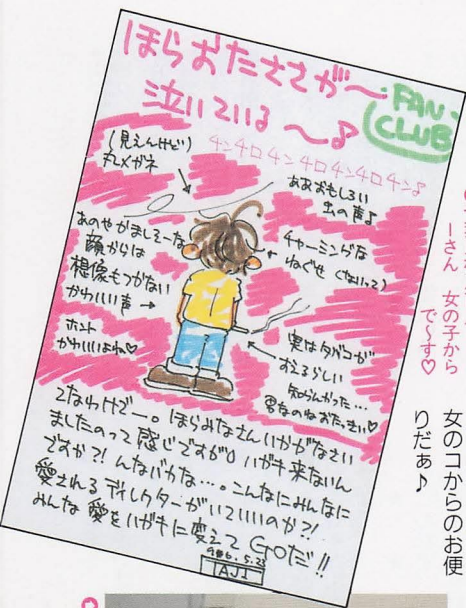 ほらおたささが〜
泣いている〜♪
FAN
CLUB
チンチロチンチロチンチロチン♪
(見えんけど)
丸メガネ
ああおもしろい
虫の声♪
あのやかましそーな
顔からは
想像もつかない
かわいい声→
チャーミングな
ねぐせ(ないって)
ホント
かわいいよね♡
実はタバコが
すえるらしい
知らんかった…
男なのねおたっきい♡
てなわけでー。ほらみなさんいかがなさい
ましたのって感じですが。ハガキ来ないん
ですか?!んなバカな…。こんなにみんなに
愛されるディレクターがいていいのか?!
みんな愛をハガキに変えてGOだ!!
AJI
ーさん 女の子から
で〜す♡
女のコからのお便
りだぁ♪